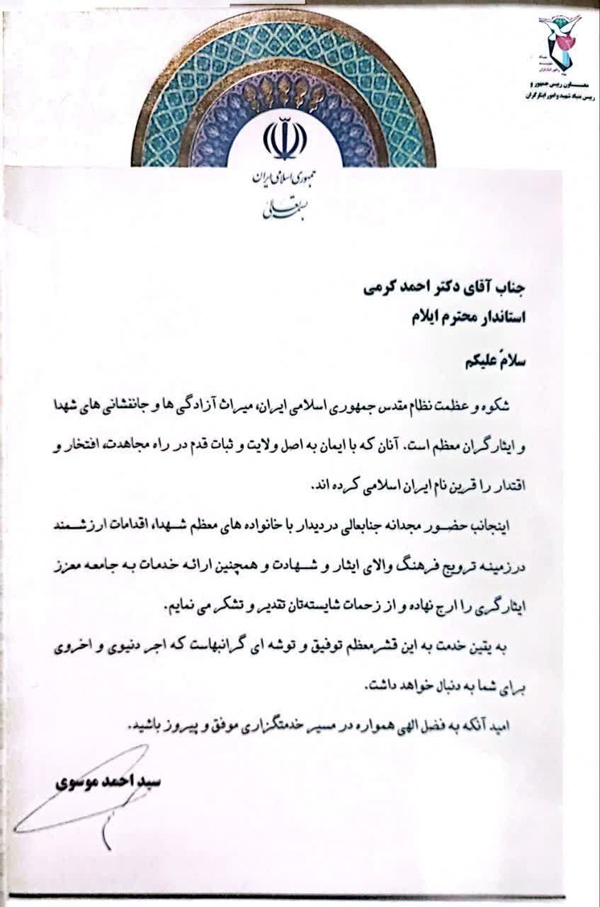 معاون رییس جمهور و
رییس بنیاد شهید و امور ایثارگران
جمهوری اسلامی ایران
بسمه تعالی
جناب آقای دکتر احمد کرمی
استاندار محترم ایلام
سلامٌ علیکم
شکوه و عظمت نظام مقدس جمهوری اسلامی ایران، میراث آزادگی ها و جانفشانی های شهدا
و ایثارگران معظم است. آنان که با ایمان به اصل ولایت و ثبات قدم در راه مجاهدت، افتخار و
اقتدار را قرین نام ایران اسلامی کرده اند.
اینجانب حضور مجدانه جنابعالی دردیدار با خانواده های معظم شهدا، اقدامات ارزشمند
درزمینه ترویج فرهنگ والای ایثار و شهادت و همچنین ارائه خدمات به جامعه معزز
ایثارگری را ارج نهاده و از زحمات شایسته‌تان تقدیر و تشکر می نمایم.
به یقین خدمت به این قشرمعظم توفیق و توشه ای گرانبهاست که اجر دنیوی و اخروی
برای شما به دنبال خواهد داشت.
امید آنکه به فضل الهی همواره در مسیر خدمتگزاری موفق و پیروز باشید.
سید احمد موسوی